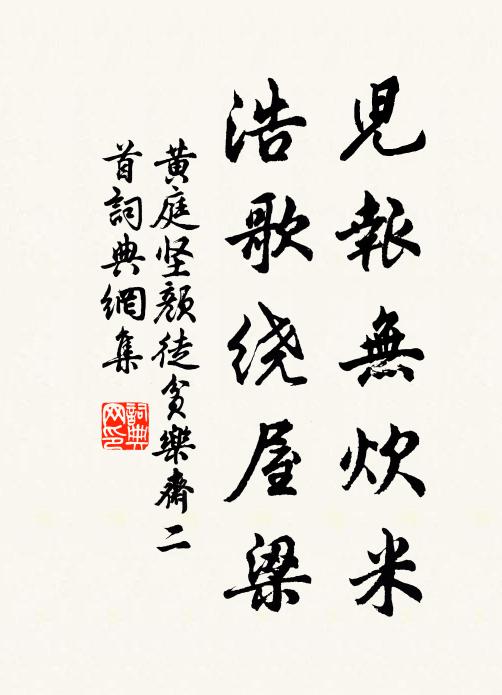 兒報無炊米
浩歌绕屋梁
黃庭坚顏徒貧樂齋二
首詞典網集
詞典
网印